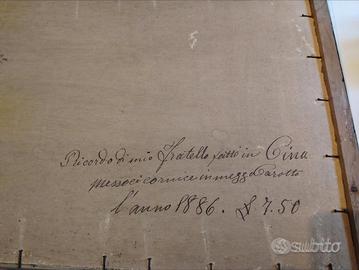 Ricordo di mio fratello fatto in Cina
messoci cornice in mezzo
l'anno 1886. £ 7.50
subito